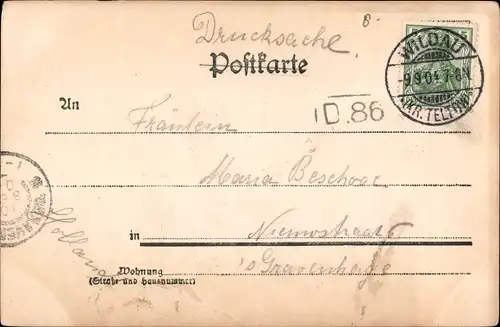 8.
Drucksache
Postkarte
WILDAU
-9.9.04.7-8N
(KR. TELTOW)
D.86
An
Fräulein
Maria Beschoge
Holland
in
's Gravenhage
Wohnung
(Straße und Hausnummer)